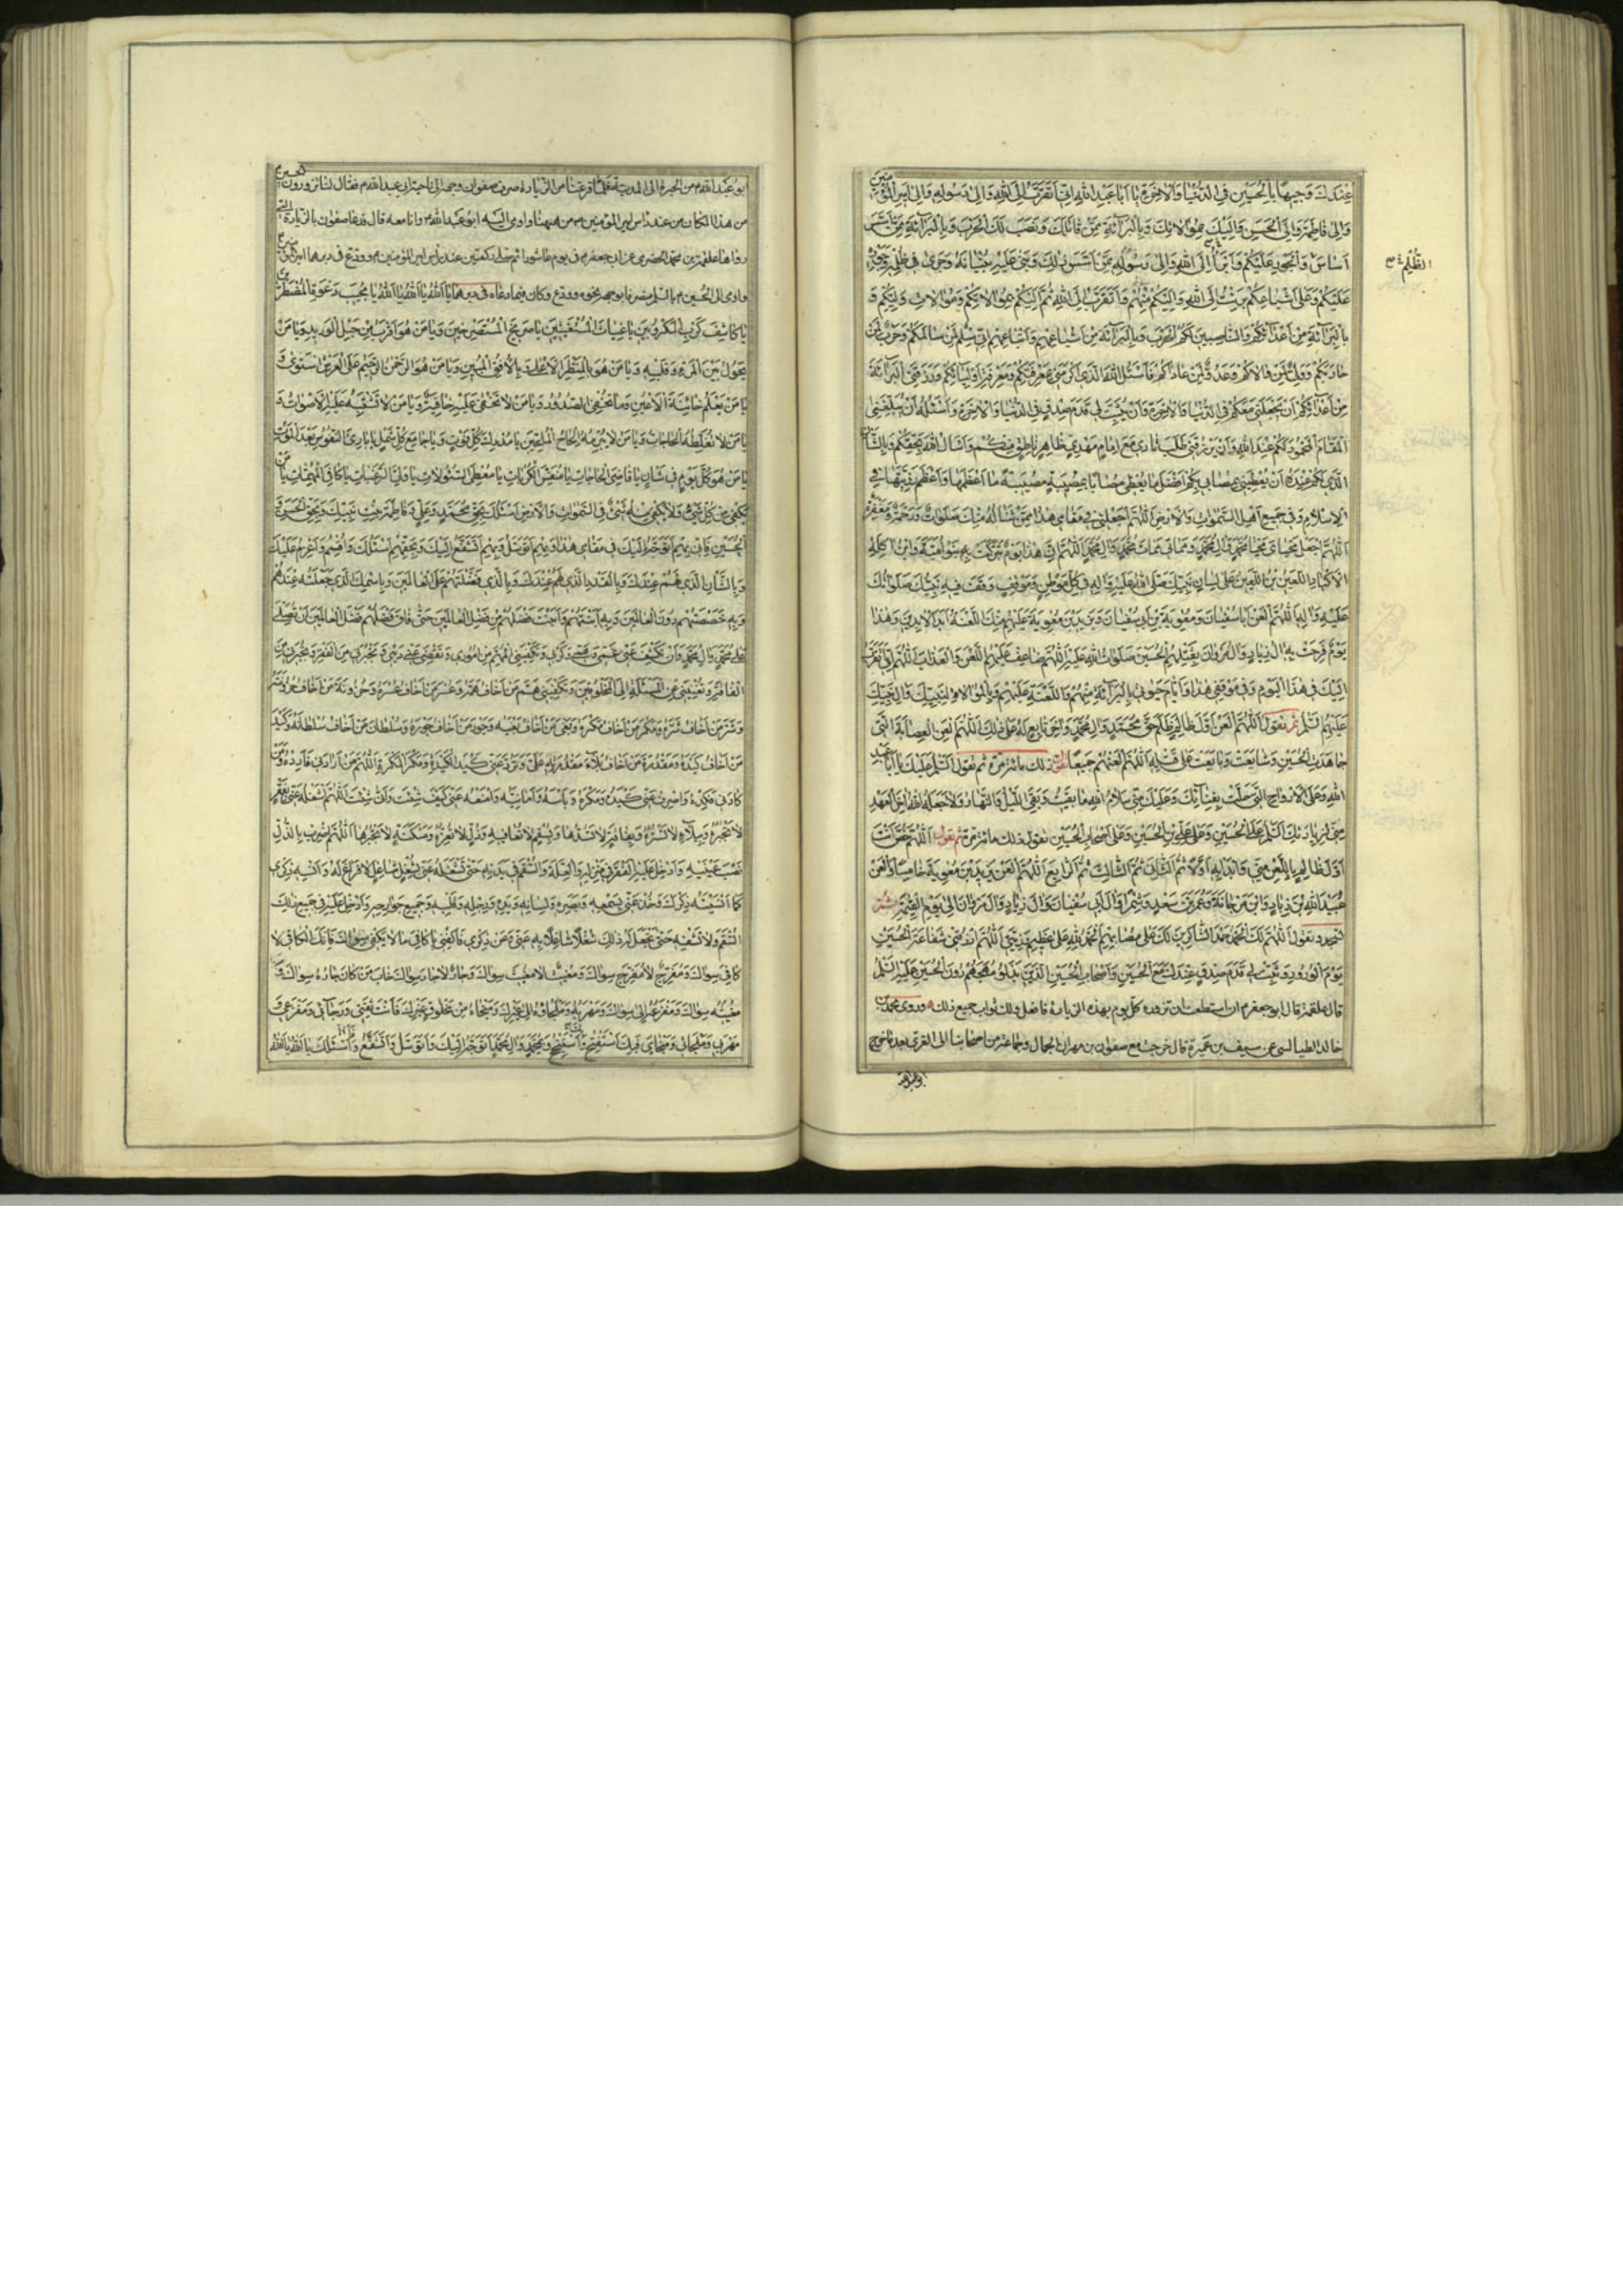 عِنْدَكَ وَجِيهًا بِالْحُسَيْنِ فِي الدُّنْيَا وَالْآخِرَةِ يَا أَبَا عَبْدِ اللهِ إِنِّي أَتَقَرَّبُ إِلَى اللهِ وَإِلَى رَسُولِهِ وَإِلَى أَمِيرِ الْمُؤْمِنِينَ
وَإِلَى فَاطِمَةَ وَإِلَى الْحَسَنِ وَإِلَيْكَ بِمُوَالَاتِكَ وَبِالْبَرَاءَةِ مِمَّنْ قَاتَلَكَ وَنَصَبَ لَكَ الْحَرْبَ وَبِالْبَرَاءَةِ مِمَّنْ أَسَّسَ
أَسَاسَ وَالْجَوْرِ عَلَيْكُمْ وَأَبْرَأُ إِلَى اللهِ وَإِلَى رَسُولِهِ مِمَّنْ أَسَّسَ ذَلِكَ وَبَنَى عَلَيْهِ بُنْيَانَهُ وَجَرَى فِي ظُلْمِهِ وَجَوْرِهِ
الظُّلْمِ
عَلَيْكُمْ وَعَلَى أَشْيَاعِكُمْ بَرِئْتُ إِلَى اللهِ وَإِلَيْكُمْ مِنْهُمْ وَأَتَقَرَّبُ إِلَى اللهِ ثُمَّ إِلَيْكُمْ بِمُوَالَاتِكُمْ وَمُوَالَاةِ وَلِيِّكُمْ وَ
بِالْبَرَاءَةِ مِنْ أَعْدَائِكُمْ وَالنَّاصِبِينَ لَكُمُ الْحَرْبَ وَبِالْبَرَاءَةِ مِنْ أَشْيَاعِهِمْ وَأَتْبَاعِهِمْ إِنِّي سِلْمٌ لِمَنْ سَالَمَكُمْ وَحَرْبٌ لِمَنْ
حَارَبَكُمْ وَوَلِيٌّ لِمَنْ وَالَاكُمْ وَعَدُوٌّ لِمَنْ عَادَاكُمْ فَأَسْئَلُ اللهَ الَّذِي أَكْرَمَنِي بِمَعْرِفَتِكُمْ وَمَعْرِفَةِ أَوْلِيَائِكُمْ وَرَزَقَنِي الْبَرَاءَةَ
مِنْ أَعْدَائِكُمْ أَنْ يَجْعَلَنِي مَعَكُمْ فِي الدُّنْيَا وَالْآخِرَةِ وَأَنْ يُثَبِّتَ لِي قَدَمَ صِدْقٍ فِي الدُّنْيَا وَالْآخِرَةِ وَأَسْئَلُهُ أَنْ يُبَلِّغَنِي
الْمَقَامَ الْمَحْمُودَ لَكُمْ عِنْدَ اللهِ وَأَنْ يَرْزُقَنِي طَلَبَ ثَارِي مَعَ إِمَامٍ مَهْدِيٍّ ظَاهِرٍ نَاطِقٍ مِنْكُمْ وَأَسْأَلُ اللهَ بِحَقِّكُمْ وَبِالشَّأْنِ
الَّذِي لَكُمْ عِنْدَهُ أَنْ يُعْطِيَنِي بِمُصَابِي بِكُمْ أَفْضَلَ مَا يُعْطِي مُصَابًا بِمُصِيبَتِهِ مُصِيبَةً مَا أَعْظَمَهَا وَأَعْظَمَ رَزِيَّتَهَا فِي
الْإِسْلَامِ وَفِي جَمِيعِ أَهْلِ السَّمَوَاتِ وَالْأَرْضِ اللَّهُمَّ اجْعَلْنِي فِي مَقَامِي هَذَا مِمَّنْ تَنَالُهُ مِنْكَ صَلَوَاتٌ وَرَحْمَةٌ وَمَغْفِرَةٌ
اللَّهُمَّ اجْعَلْ مَحْيَايَ مَحْيَا مُحَمَّدٍ وَآلِ مُحَمَّدٍ وَمَمَاتِي مَمَاتَ مُحَمَّدٍ وَآلِ مُحَمَّدٍ اللَّهُمَّ إِنَّ هَذَا يَوْمٌ تَبَرَّكَتْ بِهِ بَنُو أُمَيَّةَ وَابْنُ آكِلَةِ
الْأَكْبَادِ اللَّعِينُ بْنُ اللَّعِينِ عَلَى لِسَانِ نَبِيِّكَ صَلَّى اللهُ عَلَيْهِ وَآلِهِ فِي كُلِّ مَوْطِنٍ وَمَوْقِفٍ وَقَفَ فِيهِ نَبِيُّكَ صَلَوَاتُكَ
عَلَيْهِ وَآلِهِ اللَّهُمَّ الْعَنْ أَبَا سُفْيَانَ وَمُعَوِيَةَ بْنَ أَبِي سُفْيَانَ وَيَزِيدَ بْنَ مُعَوِيَةَ عَلَيْهِمْ مِنْكَ اللَّعْنَةُ أَبَدَ الْآبِدِينَ وَهَذَا
يَوْمٌ فَرِحَتْ بِهِ آلُ زِيَادٍ وَآلُ مَرْوَانَ بِقَتْلِهِمُ الْحُسَيْنَ صَلَوَاتُ اللهِ عَلَيْهِ اللَّهُمَّ ضَاعِفْ عَلَيْهِمُ اللَّعْنَ وَالْعَذَابَ اللَّهُمَّ إِنِّي أَتَقَرَّبُ
إِلَيْكَ فِي هَذَا الْيَوْمِ وَفِي مَوْقِفِي هَذَا وَأَيَّامِ حَيَوتِي بِالْبَرَاءَةِ مِنْهُمْ وَاللَّعْنَةِ عَلَيْهِمْ وَبِالْمُوَالَاةِ لِنَبِيِّكَ وَآلِ نَبِيِّكَ
عَلَيْهِمُ السَّلَمُ ثم تقول اللَّهُمَّ الْعَنْ أَوَّلَ ظَالِمٍ ظَلَمَ حَقَّ مُحَمَّدٍ وَآلِ مُحَمَّدٍ وَآخِرَ تَابِعٍ لَهُ عَلَى ذَلِكَ اللَّهُمَّ الْعَنِ الْعِصَابَةَ الَّتِي
جَاهَدَتِ الْحُسَيْنَ وَشَايَعَتْ وَبَايَعَتْ عَلَى قَتْلِهِ اللَّهُمَّ الْعَنْهُمْ جَمِيعًا تقول ذلك مائة مرة ثم تقول السَّلَمُ عَلَيْكَ يَا أَبَا عَبْدِ
اللهِ وَعَلَى الْأَرْوَاحِ الَّتِي حَلَّتْ بِفِنَائِكَ وَعَلَيْكَ مِنِّي سَلَامُ اللهِ مَا بَقِيتُ وَبَقِيَ اللَّيْلُ وَالنَّهَارُ وَلَا جَعَلَهُ اللهُ آخِرَ الْعَهْدِ
مِنِّي لِزِيَارَتِكَ السَّلَمُ عَلَى الْحُسَيْنِ وَعَلَى عَلِيِّ بْنِ الْحُسَيْنِ وَعَلَى أَصْحَابِ الْحُسَيْنِ تقول ذلك مائة مرة ثم تقول اللَّهُمَّ خُصَّ أَنْتَ
أَوَّلَ ظَالِمٍ بِاللَّعْنِ مِنِّي وَابْدَأْ بِهِ أَوَّلًا ثُمَّ الثَّانِيَ ثُمَّ الثَّالِثَ ثُمَّ الرَّابِعَ اللَّهُمَّ الْعَنْ يَزِيدَ بْنَ مُعَوِيَةَ خَامِسًا وَالْعَنْ
عُبَيْدَ اللهِ بْنَ زِيَادٍ وَابْنَ مَرْجَانَةَ وَعُمَرَ بْنَ سَعْدٍ وَشِمْرًا وَآلَ أَبِي سُفْيَانَ وَآلَ زِيَادٍ وَآلَ مَرْوَانَ إِلَى يَوْمِ الْقِيَمَةِ ثم
تسجد وتقول اللَّهُمَّ لَكَ الْحَمْدُ حَمْدَ الشَّاكِرِينَ لَكَ عَلَى مُصَابِهِمْ الْحَمْدُ لِلَّهِ عَلَى عَظِيمِ رَزِيَّتِي اللَّهُمَّ ارْزُقْنِي شَفَاعَةَ الْحُسَيْنِ
يَوْمَ الْوُرُودِ وَثَبِّتْ لِي قَدَمَ صِدْقٍ عِنْدَكَ مَعَ الْحُسَيْنِ وَأَصْحَابِ الْحُسَيْنِ الَّذِينَ بَذَلُوا مُهَجَهُمْ دُونَ الْحُسَيْنِ عَلَيْهِ السَّلَمُ
قال علقمة قال ابو جعفر ان استطعت ان تزوره كل يوم بهذه الزيارة فافعل ولك ثواب جميع ذلك وروى محمد بن
خالد الطيالسى عن سيف بن عميرة قال خرجت مع صفوان بن مهران الجمال وجماعة من اصحابنا الى الغرى بعد ما خرج
ابو عبد الله
ابو عبد الله من الحيرة الى المدينة فلما فرغنا من الزيارة صرف صفوان وجهه الى ناحية ابى عبد الله فقال لنا تزورون الحسين
من هذا المكان من عند راس امير المؤمنين من ههنا واومى اليه ابو عبد الله وانا معه قال فدعا صفوان بالزيارة التى
رواها علقمة بن محمد الحضرى عن ابى جعفر فى يوم عاشورا ثم صلى ركعتين عند راس امير المؤمنين وودع فى دبرهما امير المؤمنين
واومى الى الحسين بالسلم منصرفا بوجهه نحوه وودع وكان فيما دعاه فى دبرهما يَا اللهُ يَا اللهُ يَا اللهُ يَا مُجِيبَ دَعْوَةِ الْمُضْطَرِّينَ
يَا كَاشِفَ كُرَبِ الْمَكْرُوبِينَ يَا غِيَاثَ الْمُسْتَغِيثِينَ يَا صَرِيخَ الْمُسْتَصْرِخِينَ وَيَا مَنْ هُوَ أَقْرَبُ مِنْ حَبْلِ الْوَرِيدِ وَيَا مَنْ
يَحُولُ بَيْنَ الْمَرْءِ وَقَلْبِهِ وَيَا مَنْ هُوَ بِالْمَنْظَرِ الْأَعْلَى وَبِالْأُفُقِ الْمُبِينِ وَيَا مَنْ هُوَ الرَّحْمَنُ الرَّحِيمُ عَلَى الْعَرْشِ اسْتَوَى وَ
يَا مَنْ يَعْلَمُ خَائِنَةَ الْأَعْيُنِ وَمَا تُخْفِي الصُّدُورُ وَيَا مَنْ لَا تَخْفَى عَلَيْهِ خَافِيَةٌ وَيَا مَنْ لَا تَشْتَبِهُ عَلَيْهِ الْأَصْوَاتُ وَ
يَا مَنْ لَا تُغَلِّطُهُ الْحَاجَاتُ وَيَا مَنْ لَا يُبْرِمُهُ إِلْحَاحُ الْمُلِحِّينَ يَا مُدْرِكَ كُلِّ فَوْتٍ وَيَا جَامِعَ كُلِّ شَمْلٍ يَا بَارِئَ النُّفُوسِ بَعْدَ الْمَوْتِ
يَا مَنْ هُوَ كُلَّ يَوْمٍ فِي شَأْنٍ يَا قَاضِيَ الْحَاجَاتِ يَا مُنَفِّسَ الْكُرُبَاتِ يَا مُعْطِيَ السُّئُولَاتِ يَا وَلِيَّ الرَّغَبَاتِ يَا كَافِيَ الْمُهِمَّاتِ يَا مَنْ
يَكْفِي مِنْ كُلِّ شَيْءٍ وَلَا يَكْفِي مِنْهُ شَيْءٌ فِي السَّمَوَاتِ وَالْأَرْضِ أَسْئَلُكَ بِحَقِّ مُحَمَّدٍ وَعَلِيٍّ وَفَاطِمَةَ بِنْتِ نَبِيِّكَ وَبِحَقِّ الْحَسَنِ وَ
الْحُسَيْنِ فَإِنِّي بِهِمْ أَتَوَجَّهُ إِلَيْكَ فِي مَقَامِي هَذَا وَبِهِمْ أَتَوَسَّلُ وَبِهِمْ أَتَشَفَّعُ إِلَيْكَ وَبِحَقِّهِمْ أَسْئَلُكَ وَأُقْسِمُ وَأَعْزِمُ عَلَيْكَ
وَبِالشَّأْنِ الَّذِي لَهُمْ عِنْدَكَ وَبِالْقَدْرِ الَّذِي لَهُمْ عِنْدَكَ وَبِالَّذِي فَضَّلْتَهُمْ عَلَى الْعَالَمِينَ وَبِاسْمِكَ الَّذِي جَعَلْتَهُ عِنْدَهُمْ
وَبِهِ خَصَصْتَهُمْ دُونَ الْعَالَمِينَ وَبِهِ أَبَنْتَهُمْ وَأَبَنْتَ فَضْلَهُمْ مِنْ فَضْلِ الْعَالَمِينَ حَتَّى فَاقَ فَضْلُهُمْ فَضْلَ الْعَالَمِينَ أَنْ تُصَلِّيَ
عَلَى مُحَمَّدٍ وَآلِ مُحَمَّدٍ وَأَنْ تَكْشِفَ عَنِّي غَمِّي وَهَمِّي وَكَرْبِي وَتَكْفِيَنِي الْمُهِمَّ مِنْ أُمُورِي وَتَقْضِيَ عَنِّي دَيْنِي وَتُجِيرَنِي مِنَ الْفَقْرِ وَتُجِيرَنِي مِنَ
الْفَاقَةِ وَتُغْنِيَنِي عَنِ الْمَسْئَلَةِ إِلَى الْمَخْلُوقِينَ وَتَكْفِيَنِي هَمَّ مَنْ أَخَافُ هَمَّهُ وَعُسْرَ مَنْ أَخَافُ عُسْرَهُ وَحُزُونَةَ مَنْ أَخَافُ حُزُونَتَهُ
وَشَرَّ مَنْ أَخَافُ شَرَّهُ وَمَكْرَ مَنْ أَخَافُ مَكْرَهُ وَبَغْيَ مَنْ أَخَافُ بَغْيَهُ وَجَوْرَ مَنْ أَخَافُ جَوْرَهُ وَسُلْطَانَ مَنْ أَخَافُ سُلْطَانَهُ وَكَيْدَ
مَنْ أَخَافُ كَيْدَهُ وَمَقْدُرَةَ مَنْ أَخَافُ مَقْدُرَتِهِ عَلَيَّ وَتَرُدَّ عَنِّي كَيْدَ الْكَيَدَةِ وَمَكْرَ الْمَكَرَةِ اللَّهُمَّ مَنْ أَرَادَنِي فَأَرِدْهُ وَمَنْ
كَادَنِي فَكِدْهُ وَاصْرِفْ عَنِّي كَيْدَهُ وَمَكْرَهُ وَبَأْسَهُ وَأَمَانِيَّهُ وَامْنَعْهُ عَنِّي كَيْفَ شِئْتَ وَأَنَّى شِئْتَ اللَّهُمَّ اشْغَلْهُ عَنِّي بِفَقْرٍ
لَا تَجْبُرُهُ وَبِبَلَاءٍ لَا تَسْتُرُهُ وَبِفَاقَةٍ لَا تَسُدُّهَا وَبِسُقْمٍ لَا تُعَافِيهِ وَذُلٍّ لَا تُعِزُّهُ وَمَسْكَنَةٍ لَا تَجْبُرُهَا اللَّهُمَّ اضْرِبْ بِالذُّلِّ
نَصْبَ عَيْنَيْهِ وَأَدْخِلْ عَلَيْهِ الْفَقْرَ فِي مَنْزِلِهِ وَالْعِلَّةَ وَالسُّقْمَ فِي بَدَنِهِ حَتَّى تَشْغَلَهُ عَنِّي بِشُغْلٍ شَاغِلٍ لَا فَرَاغَ لَهُ وَأَنْسِهِ ذِكْرِي
كَمَا أَنْسَيْتَهُ ذِكْرَكَ وَخُذْ عَنِّي بِسَمْعِهِ وَبَصَرِهِ وَلِسَانِهِ وَيَدِهِ وَرِجْلِهِ وَقَلْبِهِ وَجَمِيعِ جَوَارِحِهِ وَأَدْخِلْ عَلَيْهِ فِي جَمِيعِ ذَلِكَ
السُّقْمَ وَلَا تَشْفِهِ حَتَّى تَجْعَلَ لَهُ ذَلِكَ شُغْلًا شَاغِلًا بِهِ عَنِّي وَعَنْ ذِكْرِي وَاكْفِنِي يَا كَافِيَ مَا لَا يَكْفِي سِوَاكَ فَإِنَّكَ الْكَافِي لَا
كَافِيَ سِوَاكَ وَمُفَرِّجٌ لَا مُفَرِّجَ سِوَاكَ وَمُغِيثٌ لَا مُغِيثَ سِوَاكَ وَجَارٌ لَا جَارَ سِوَاكَ خَابَ مَنْ كَانَ جَارُهُ سِوَاكَ وَ
مُغِيثُهُ سِوَاكَ وَمَفْزَعُهُ إِلَى سِوَاكَ وَمَهْرَبُهُ وَمَلْجَاهُ إِلَى غَيْرِكَ وَمَنْجَاهُ مِنْ مَخْلُوقٍ غَيْرِكَ فَأَنْتَ ثِقَتِي وَرَجَائِي وَمَفْزَعِي وَ
مَهْرَبِي وَمَلْجَائِي وَمَنْجَايَ فَبِكَ أَسْتَفْتِحُ وَبِكَ أَسْتَنْجِحُ وَبِمُحَمَّدٍ وَآلِ مُحَمَّدٍ أَتَوَجَّهُ إِلَيْكَ وَأَتَوَسَّلُ وَأَتَشَفَّعُ فَأَسْئَلُكَ يَا اللهُ يَا اللهُ